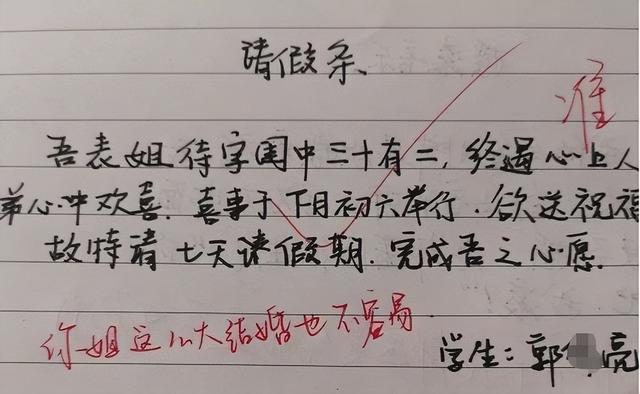 请假条
准
吾表姐待字闺中三十有二，终遇心上人
弟心中欢喜．喜事于下月初六举行．欲送祝福
故特请七天请假期．完成吾之心愿．
你姐这么大结婚也不容易
学生：郭亮